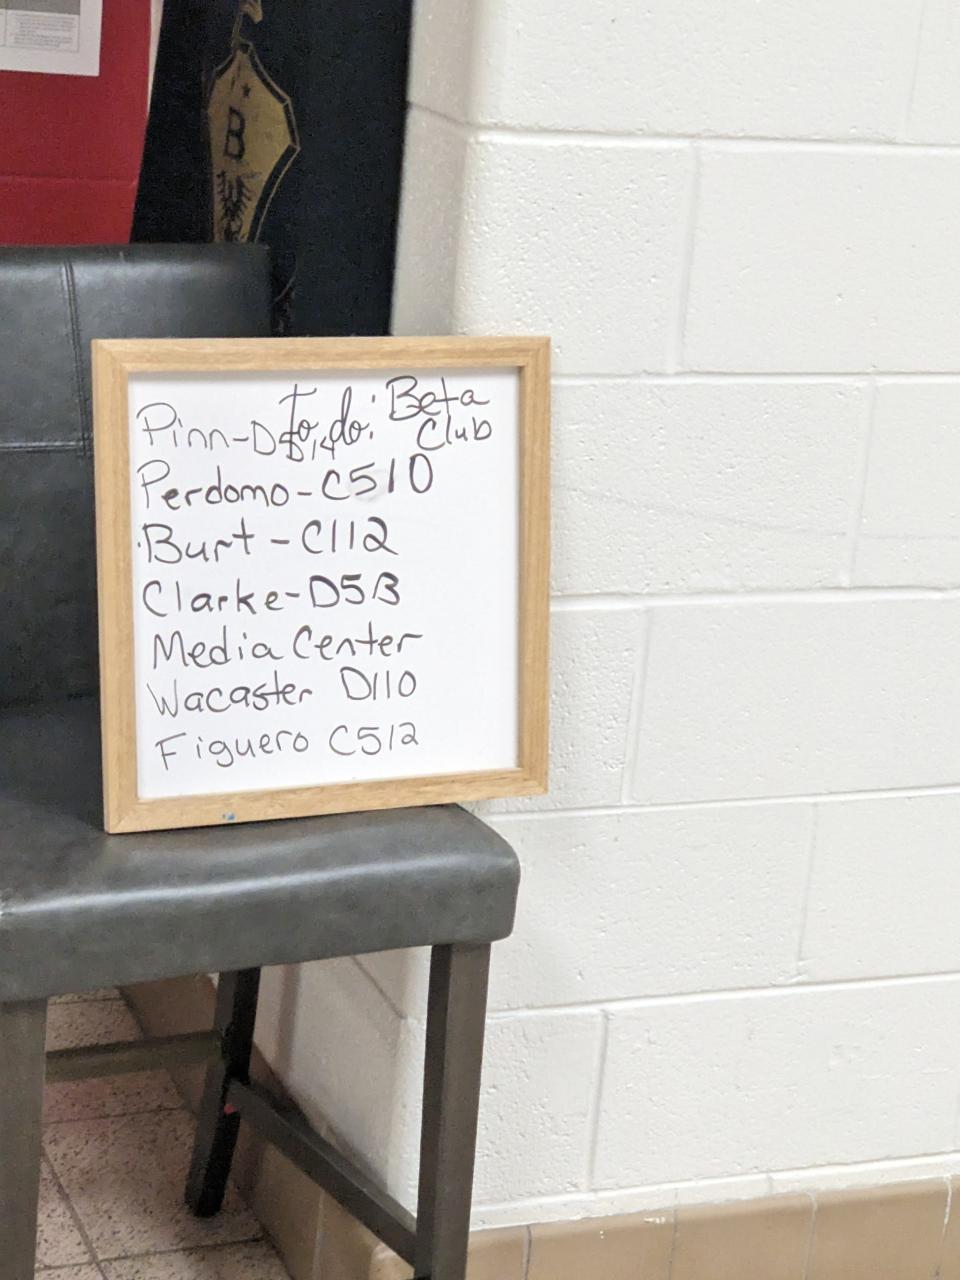 B
to do: Beta
Pinn-D514 Club
Perdomo-C510
Burt-C112
Clarke-D513
Media Center
Wacaster D110
Figuero C512